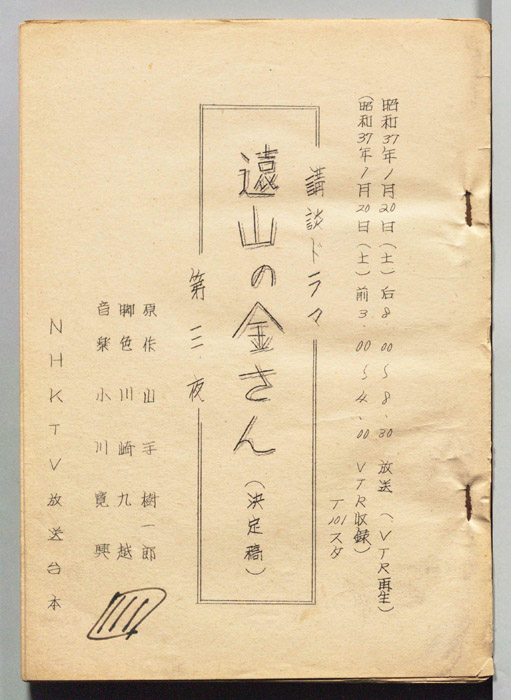 昭和37年1月20日(土)后8.00〜8.30 放送 (VTR再生)
(昭和37年1月20日(土)前3.00〜4.00 VTR収録)
T101スタ
講談ドラマ
遠山の金さん(決定稿)
第三夜
原作 山手樹一郎
脚色 川崎九越
音楽 小川寛興
NHKTV放送台本